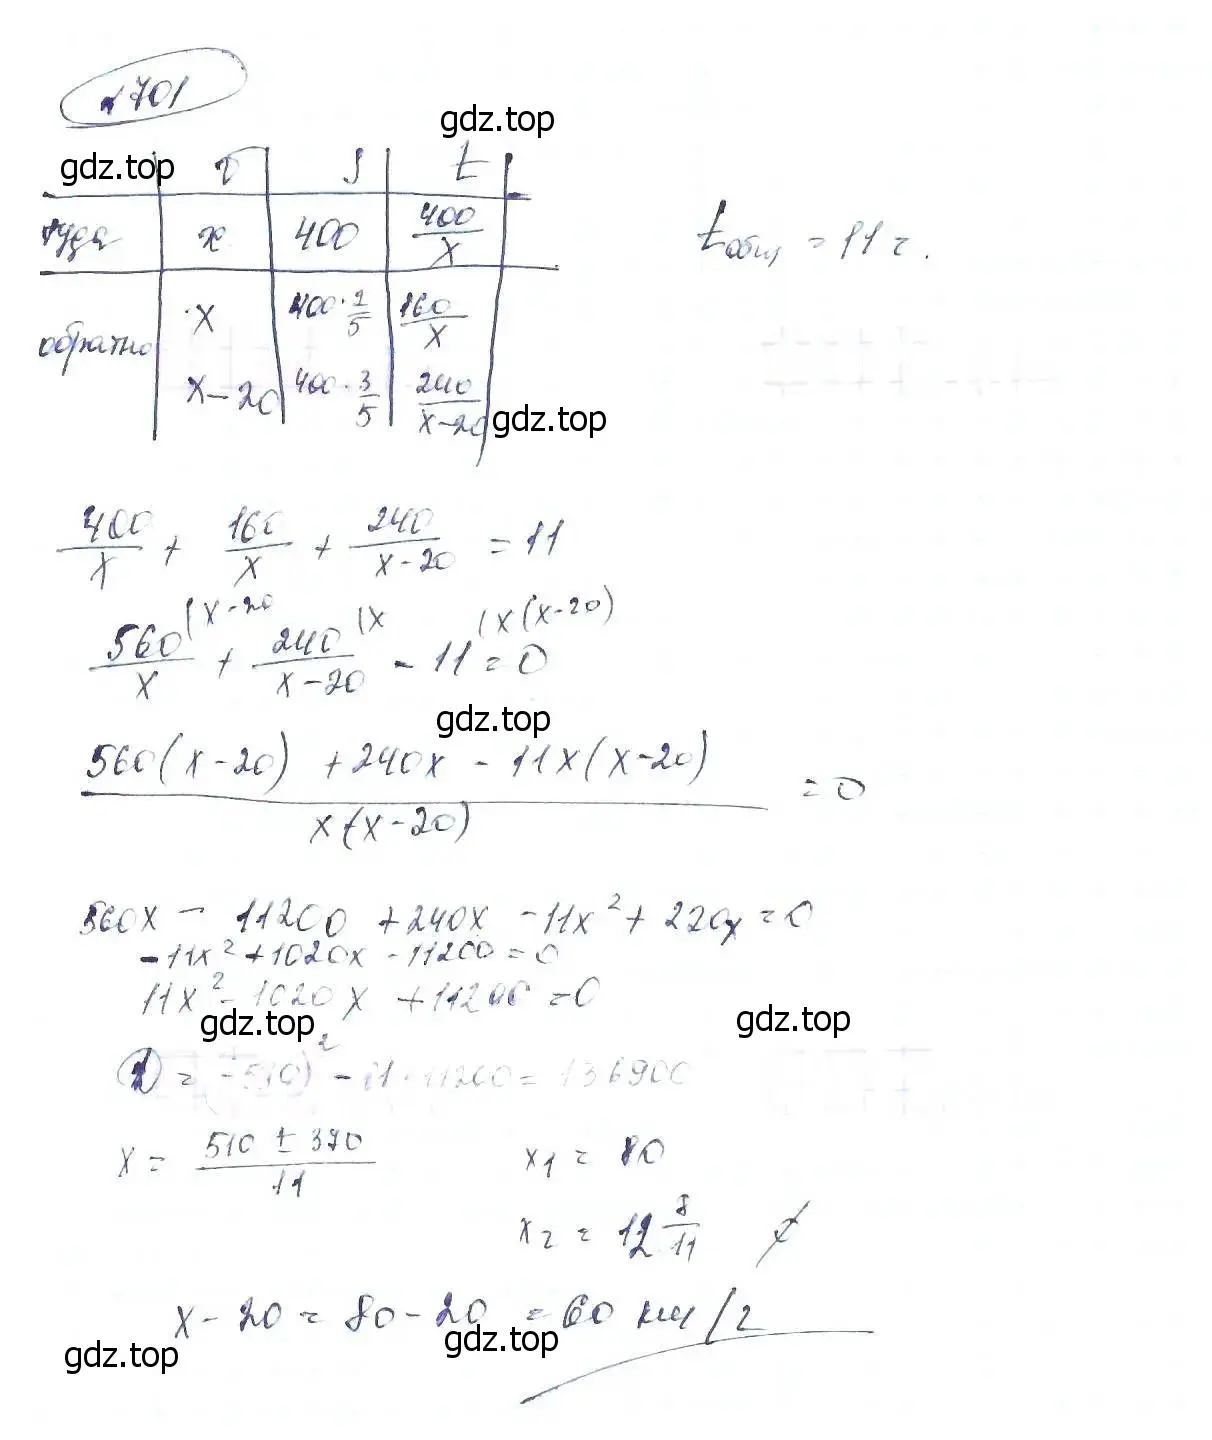 № 701
gdz.top
gdz.top v S t
туда x 400 400/x
tобщ = 11 ч.
обратно x 400 · 2/5 160/x
x - 20 400 · 3/5 240/(x-20)
gdz.top
400/x + 160/x + 240/(x-20) = 11
560/x (x-20 + 240/(x-20) (x - 11 (x(x-20) = 0
gdz.top
(560(x-20) + 240x - 11x(x-20))/(x(x-20)) = 0
560x - 11200 + 240x - 11x² + 220x = 0
-11x² + 1020x - 11200 = 0
11x² - 1020x + 11200 = 0
gdz.top gdz.top
D = (-510)² - 11·11200 = 136900
x = (510 ± 370)/11 x1 = 80
x2 = 12 8/11
x - 20 = 80 - 20 = 60 км/ч
gdz.top gdz.top